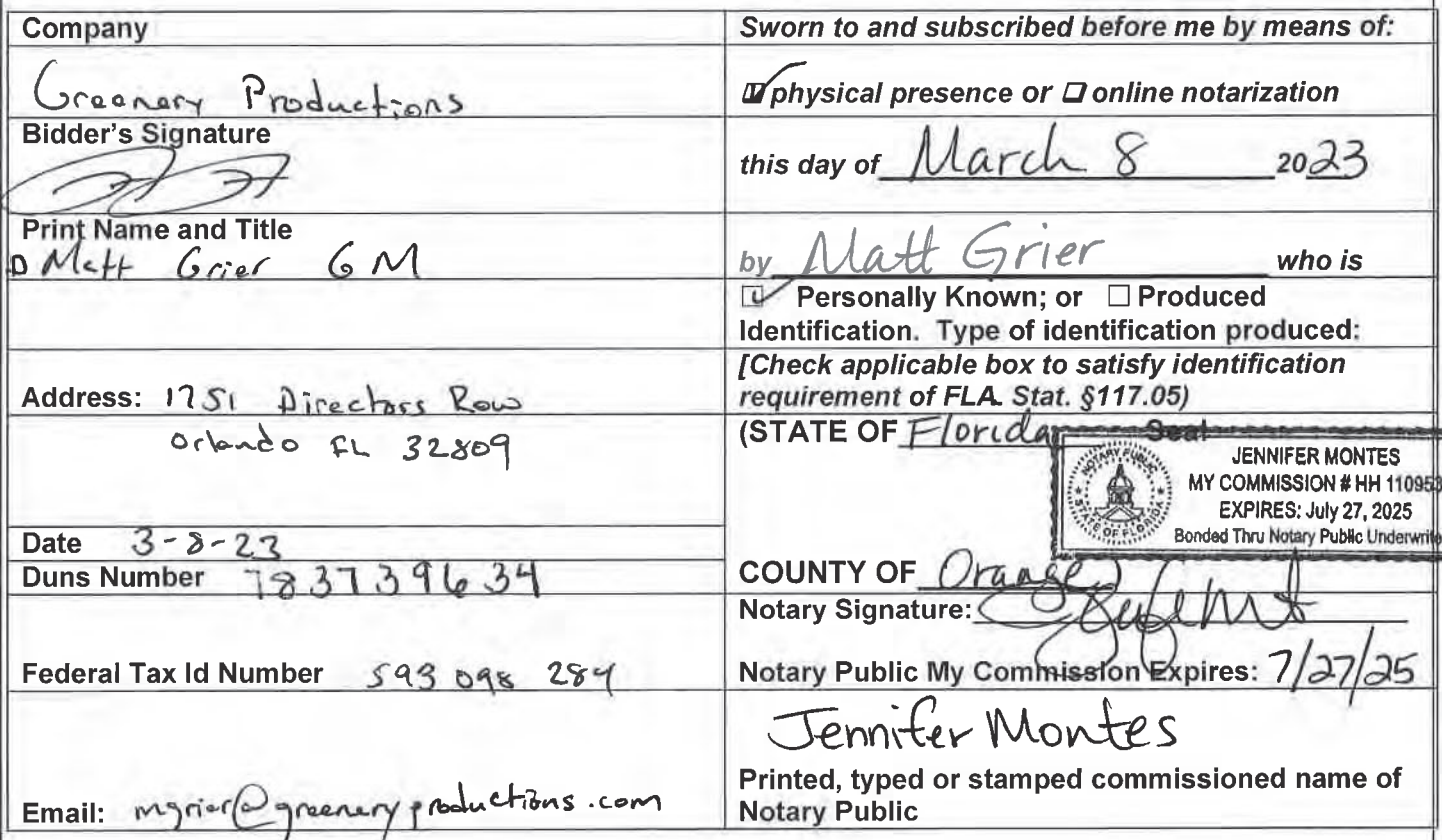 Company
Greenery Productions
Bidder's Signature
Print Name and Title
Matt Grier GM
Address: 1751 Directors Row
Orlando FL 32809
Date 3-8-23
Duns Number 783739634
Federal Tax Id Number 593 098 284
Email: mgrier@greeneryproductions.com
Sworn to and subscribed before me by means of:
☑ physical presence or ☐ online notarization
this day of March 8 2023
by Matt Grier who is
☑ Personally Known; or ☐ Produced
Identification. Type of identification produced:
[Check applicable box to satisfy identification
requirement of FLA. Stat. §117.05)
(STATE OF Florida Seal
NOTARY PUBLIC
STATE OF FLORIDA
JENNIFER MONTES
MY COMMISSION # HH 110953
EXPIRES: July 27, 2025
Bonded Thru Notary Public Underwrite
COUNTY OF Orange
Notary Signature:
Notary Public My Commission Expires: 7/27/25
Jennifer Montes
Printed, typed or stamped commissioned name of
Notary Public